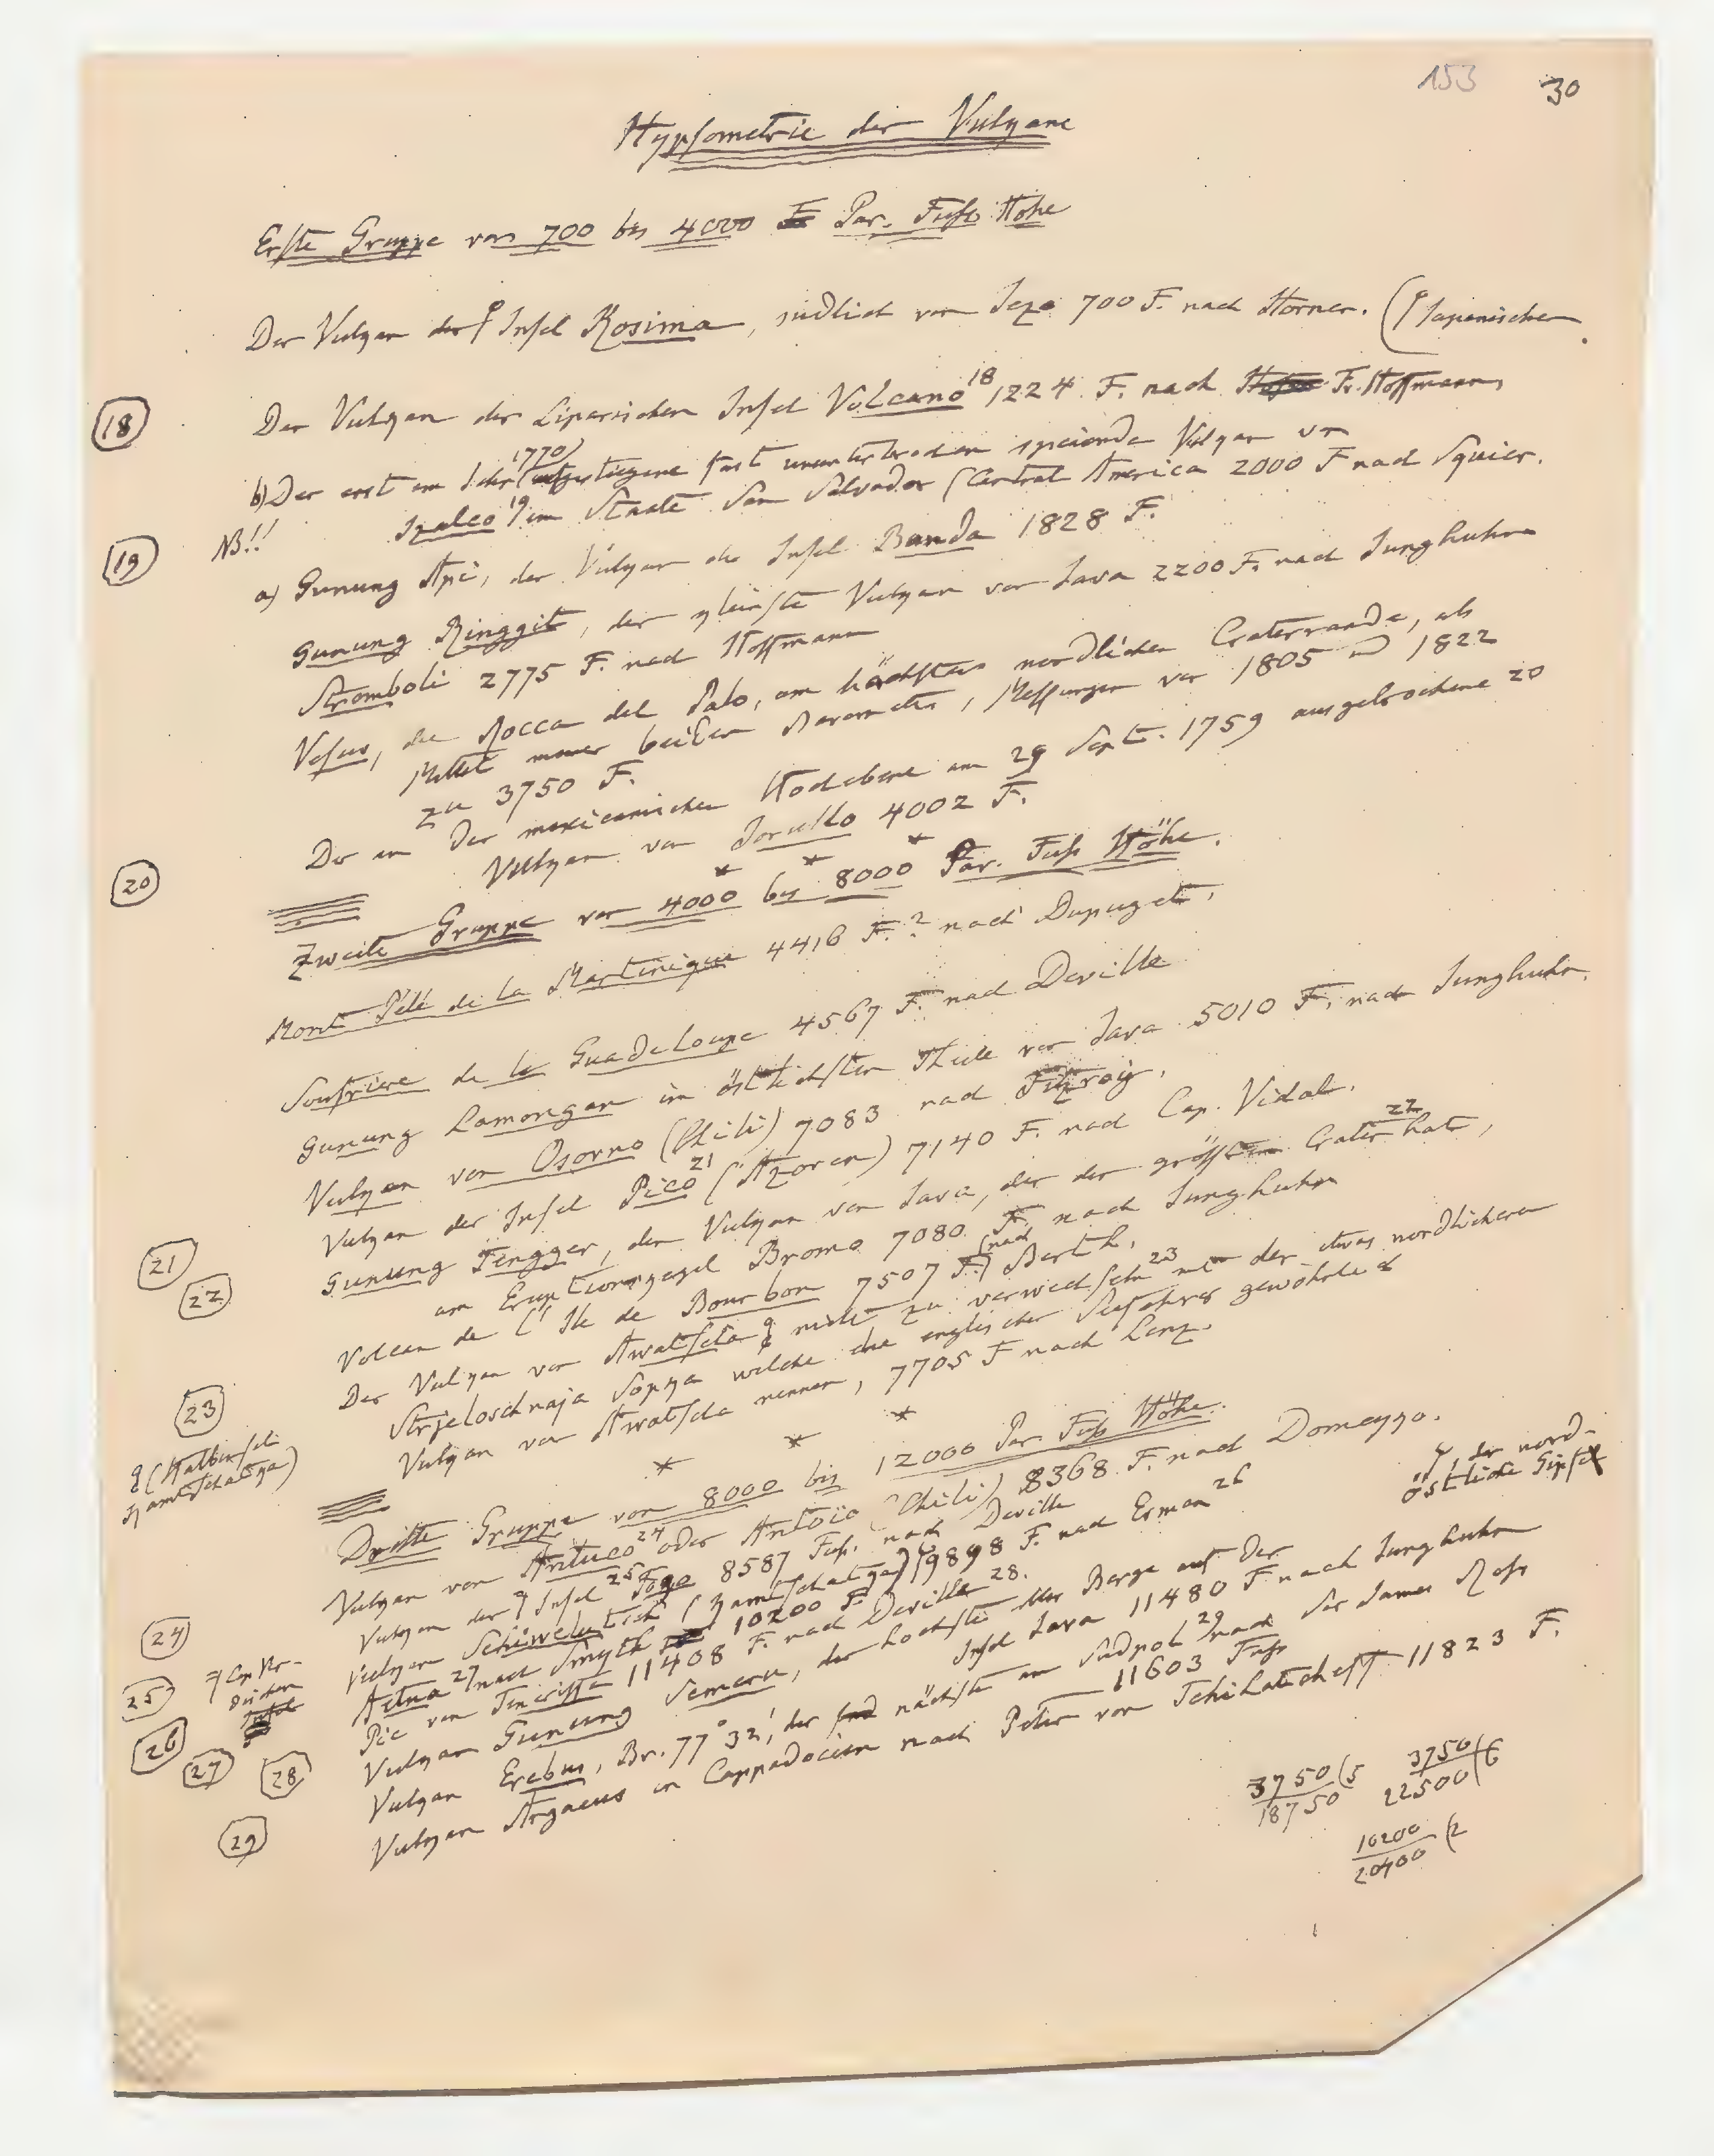 153 30
Hypsometrie der Vulkane
Erste Gruppe von 700 bis 4000 Par. Fuss Höhe
Der Vulkan der Insel Kosima, südlich von Jezo 700 F. nach Horner. (Japanischen
18 Der Vulkan der Liparischen Insel Volcano 18 1224 F. nach Fr. Hoffmann
b) Der erst im Jahr 1770 aufgestiegene fast ununterbrochen speiende Vulkan von
NB!! Izalco 19 im Staate San Salvador (Central America 2000 F nach Squier.
19 a) Gunung Api, der Vulkan der Insel Banda 1828 F.
Gunung Ringgit, der kleinste Vulkan von Java 2200 F. nach Junghuhn
Stromboli 2775 F. nach Hoffmann
Vesuv, die Rocca del Palo, am höchsten nordlichen Craterrande, als
Mittel meiner beiden Barometer, Messungen von 1805 und 1822
zu 3750 F.
Der in der mexicanischen Hochebene am 29 Sept. 1759 ausgebrochene 20
20 Vulkan von Jorullo 4002 F.
Zweite Gruppe von 4000 bis 8000 Par. Fuss Höhe.
Mont Pelé de la Martinique 4416 F.? nach Dupuget.
Soufriere de la Guadeloupe 4567 F. nach Deville
Gunung Lamongan im östlichsten Theile von Java 5010 F. nach Junghuhn.
Vulkan von Osorno (Chili) 7083 nach Fitzroy.
21 Vulkan der Insel Pico 21 (Azoren) 7140 F. nach Cap. Vidal.
22 Gunung Tengger, der Vulkan von Java, der den grössten Crater 22 hat,
am Eruptionskegel Bromo 7080 F. nach Junghuhn
Volcan de l'Ile de Bourbon 7507 F. (nach) Berth.
23 Der Vulkan von Awatscha nicht zu verwechseln 23 mit der etwas nordlicheren
(Halbinsel Strjeloschnaja Sopka welche die englischen Seefahrer gewöhnlich
Kamtschatka) Vulkan von Awatscha nennen, 7705 F nach Lenz.
Dritte Gruppe von 8000 bis 12000 Par. Fuss Höhe.
24 Vulkan von Antuco 24 oder Antoio (Chili) 8368 F. nach Domeyko.
25 Vulkan der Insel 25 Fogo 8587 Fuss. nach Deville
Cap Verdischen Insel
26 Vulkan Schiwelutsch (Kamtschatka) 9898 F. nach Erman 26 , der nordöstliche Gipfel
27 Aetna 27 nach Smyth 10200 F.
28 Pic von Teneriffa 11408 F. nach Deville 28.
Vulkan Gunung Semeru, der höchste aller Berge auf der
Insel Java 11480 F nach Junghuhn
29 Vulkan Erebus, Br. 77° 32', der nächste am Südpol 29 nach Sir James Ross
11603 Fuss
Vulkan Argaeus in Cappadocien nach Peter von Tchihatcheff 11823 F.
3750(5 3750(6
18750 22500
10200 (2
20400